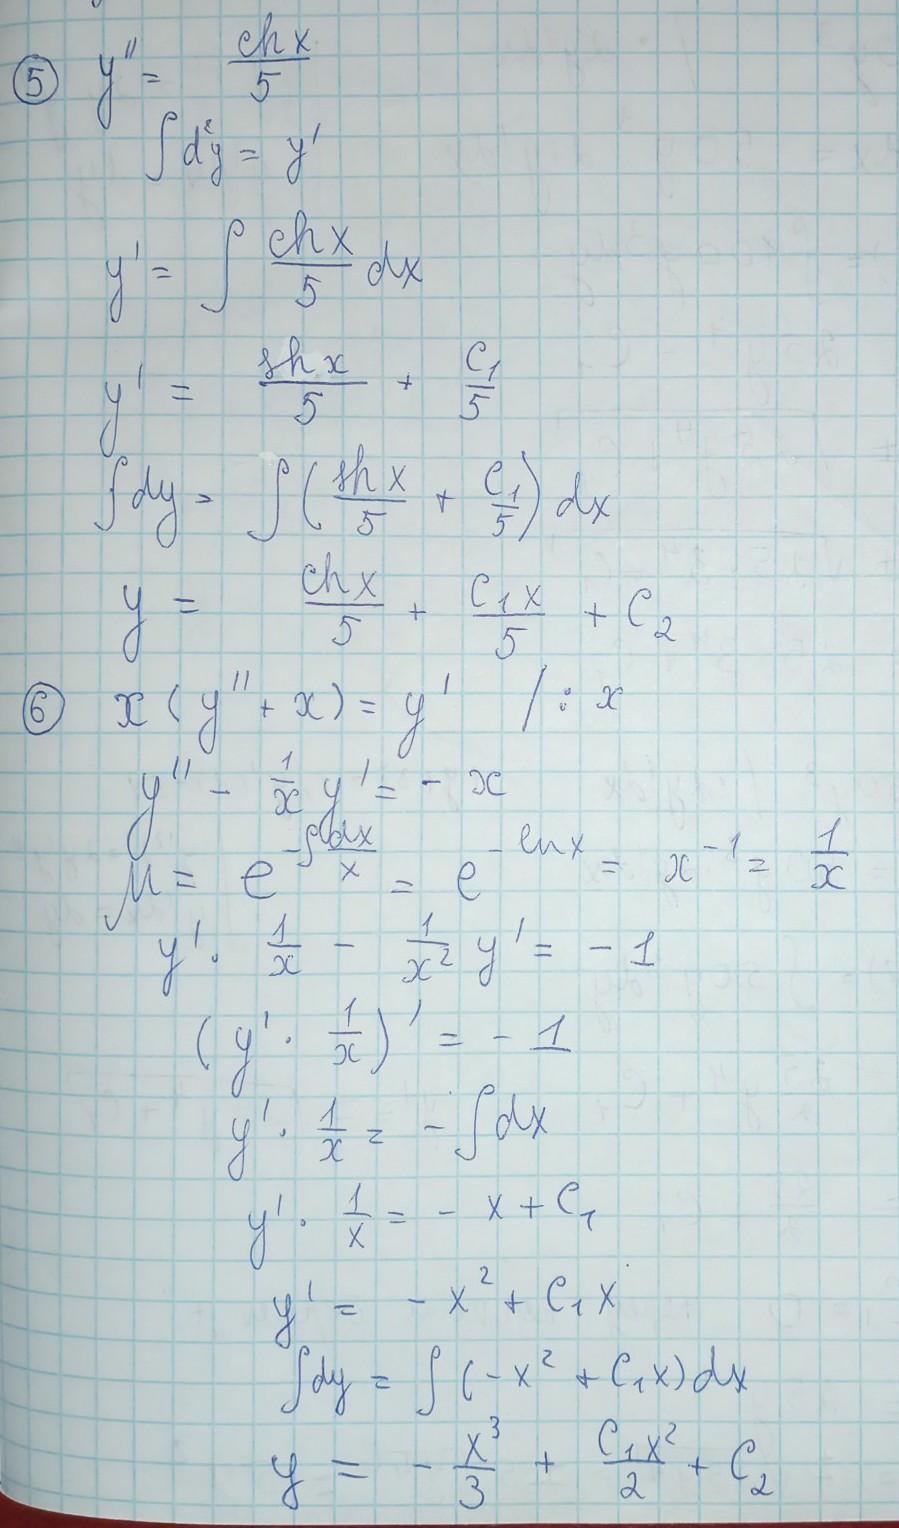 ⑤ y'' = chx/5
∫d²y = y'
y' = ∫ chx/5 dx
y' = shx/5 + C₁/5
∫dy = ∫(shx/5 + C₁/5) dx
y = chx/5 + C₁x/5 + C₂
⑥ x(y'' + x) = y' / : x
y'' - 1/x y' = - x
M = e^(-∫dx/x) = e^(-lnx) = x⁻¹ = 1/x
y' · 1/x - 1/x² y' = - 1
(y' · 1/x)' = - 1
y' · 1/x = - ∫dx
y' · 1/x = - x + C₁
y' = - x² + C₁x
∫dy = ∫(-x² + C₁x)dx
y = - x³/3 + C₁x²/2 + C₂